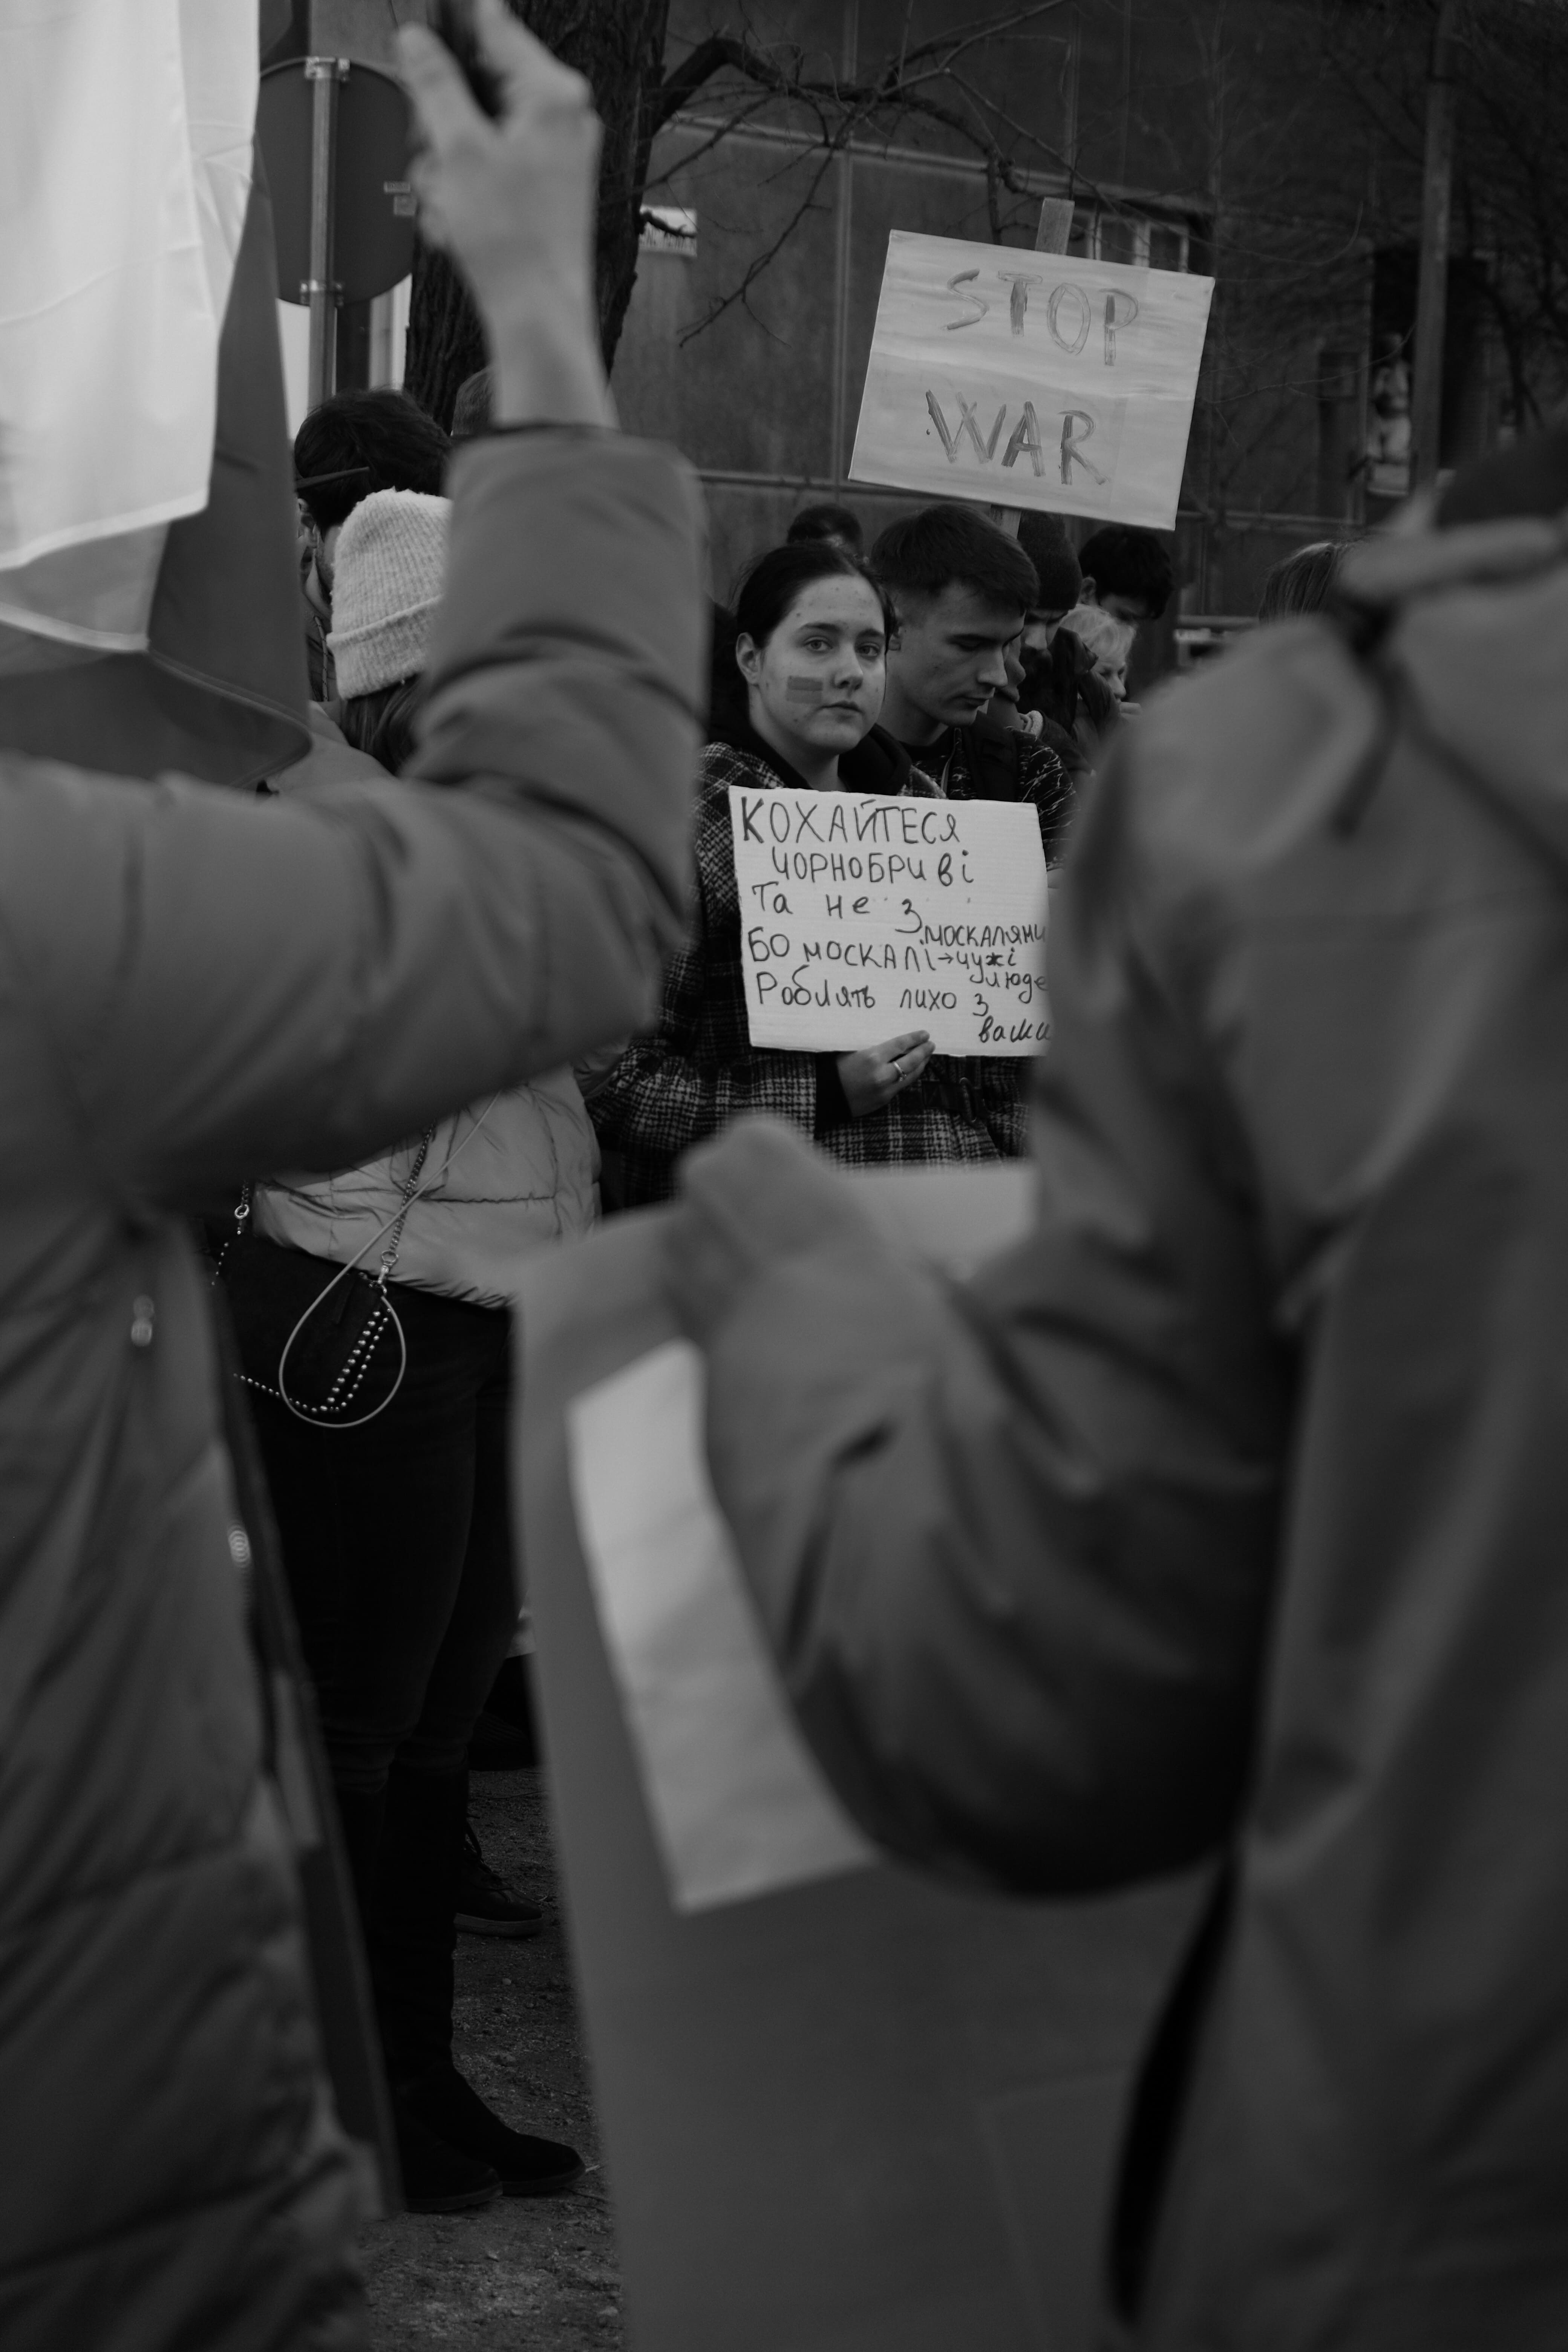 STOP
WAR
КОХАЙТЕСЯ
ЧОРНОБРИВІ
Та не з
москалями
Бо москалі→чужі
люде
Роблять лихо з
вами